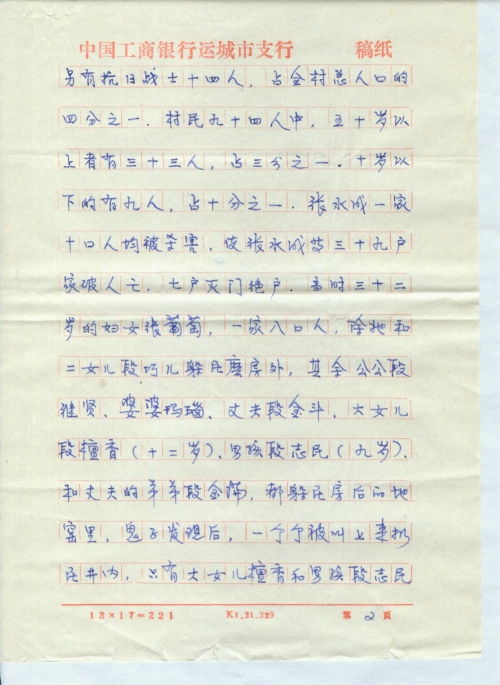 中国工商银行运城市支行 稿纸
另有抗日战士十四人，占全村总人口的
四分之一．村民九十四人中，五十岁以
上者有三十三人，占三分之一．十岁以
下的有九人，占十分之一．张永成一家
十口人均被杀害，使张永成等三十九户
家破人亡，七户灭门绝户，当时三十二
岁的妇女张葡萄，一家八口人，除她和
二女儿段巧儿躲在磨房外，其余公公段
继贤、婆婆玛瑙、丈夫段金斗、大女儿
段檀香（十二岁）、男孩段志民（九岁）、
和丈夫的弟弟段金，都躲在房后的地
窑里，鬼子发现后，一个个被叫上来扔
在井内，只有大女儿檀香和男孩段志民
13×17=221 K1.21.329 第 2 頁